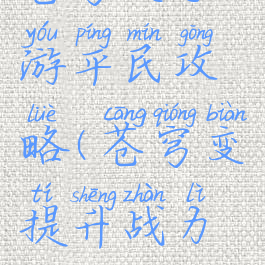 yóu píng mín gōng
游平民攻
lüè cāng qióng biàn
略(苍穹变
tí shēng zhàn lì
提升战力